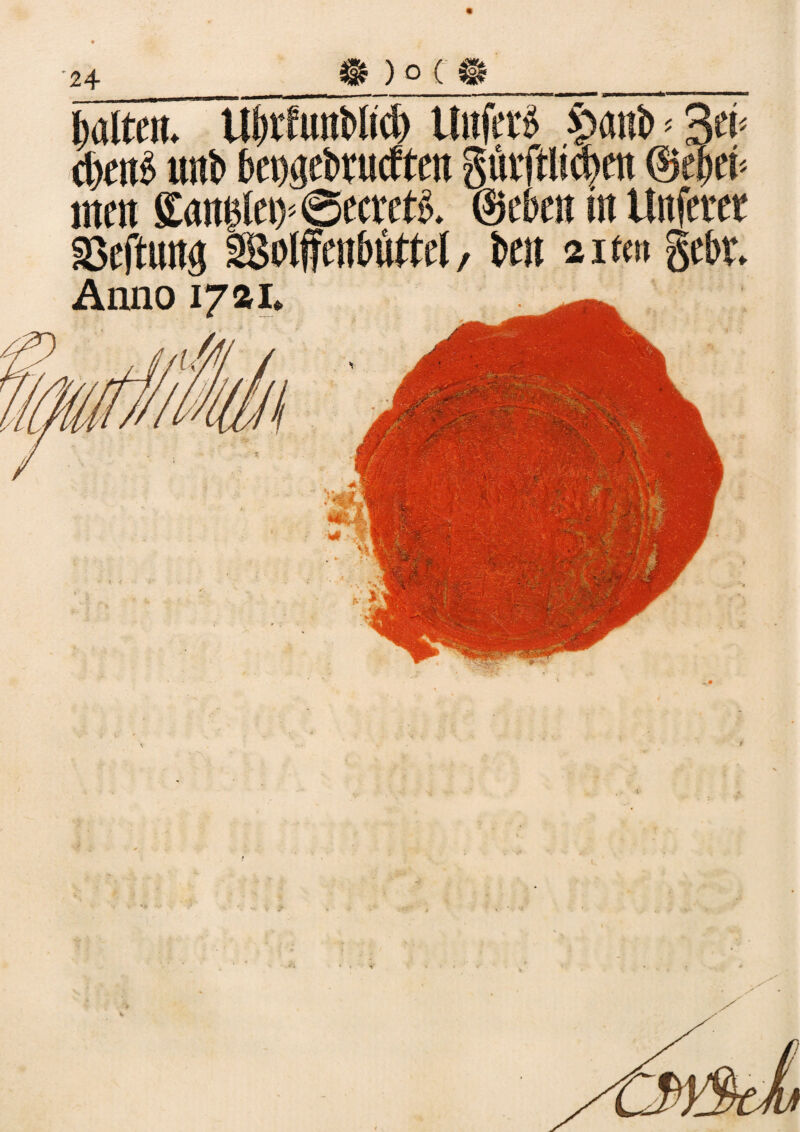 24 ) o (
halten. Uhrkundlich Unsers Hand-Zei-
chens und beygedruckten Fürstlichen Gehei-
men Cantzley-Secrets. Geben in Unserer
Vestung Wolffenbüttel, den 21ten Febr.
Anno 1721.